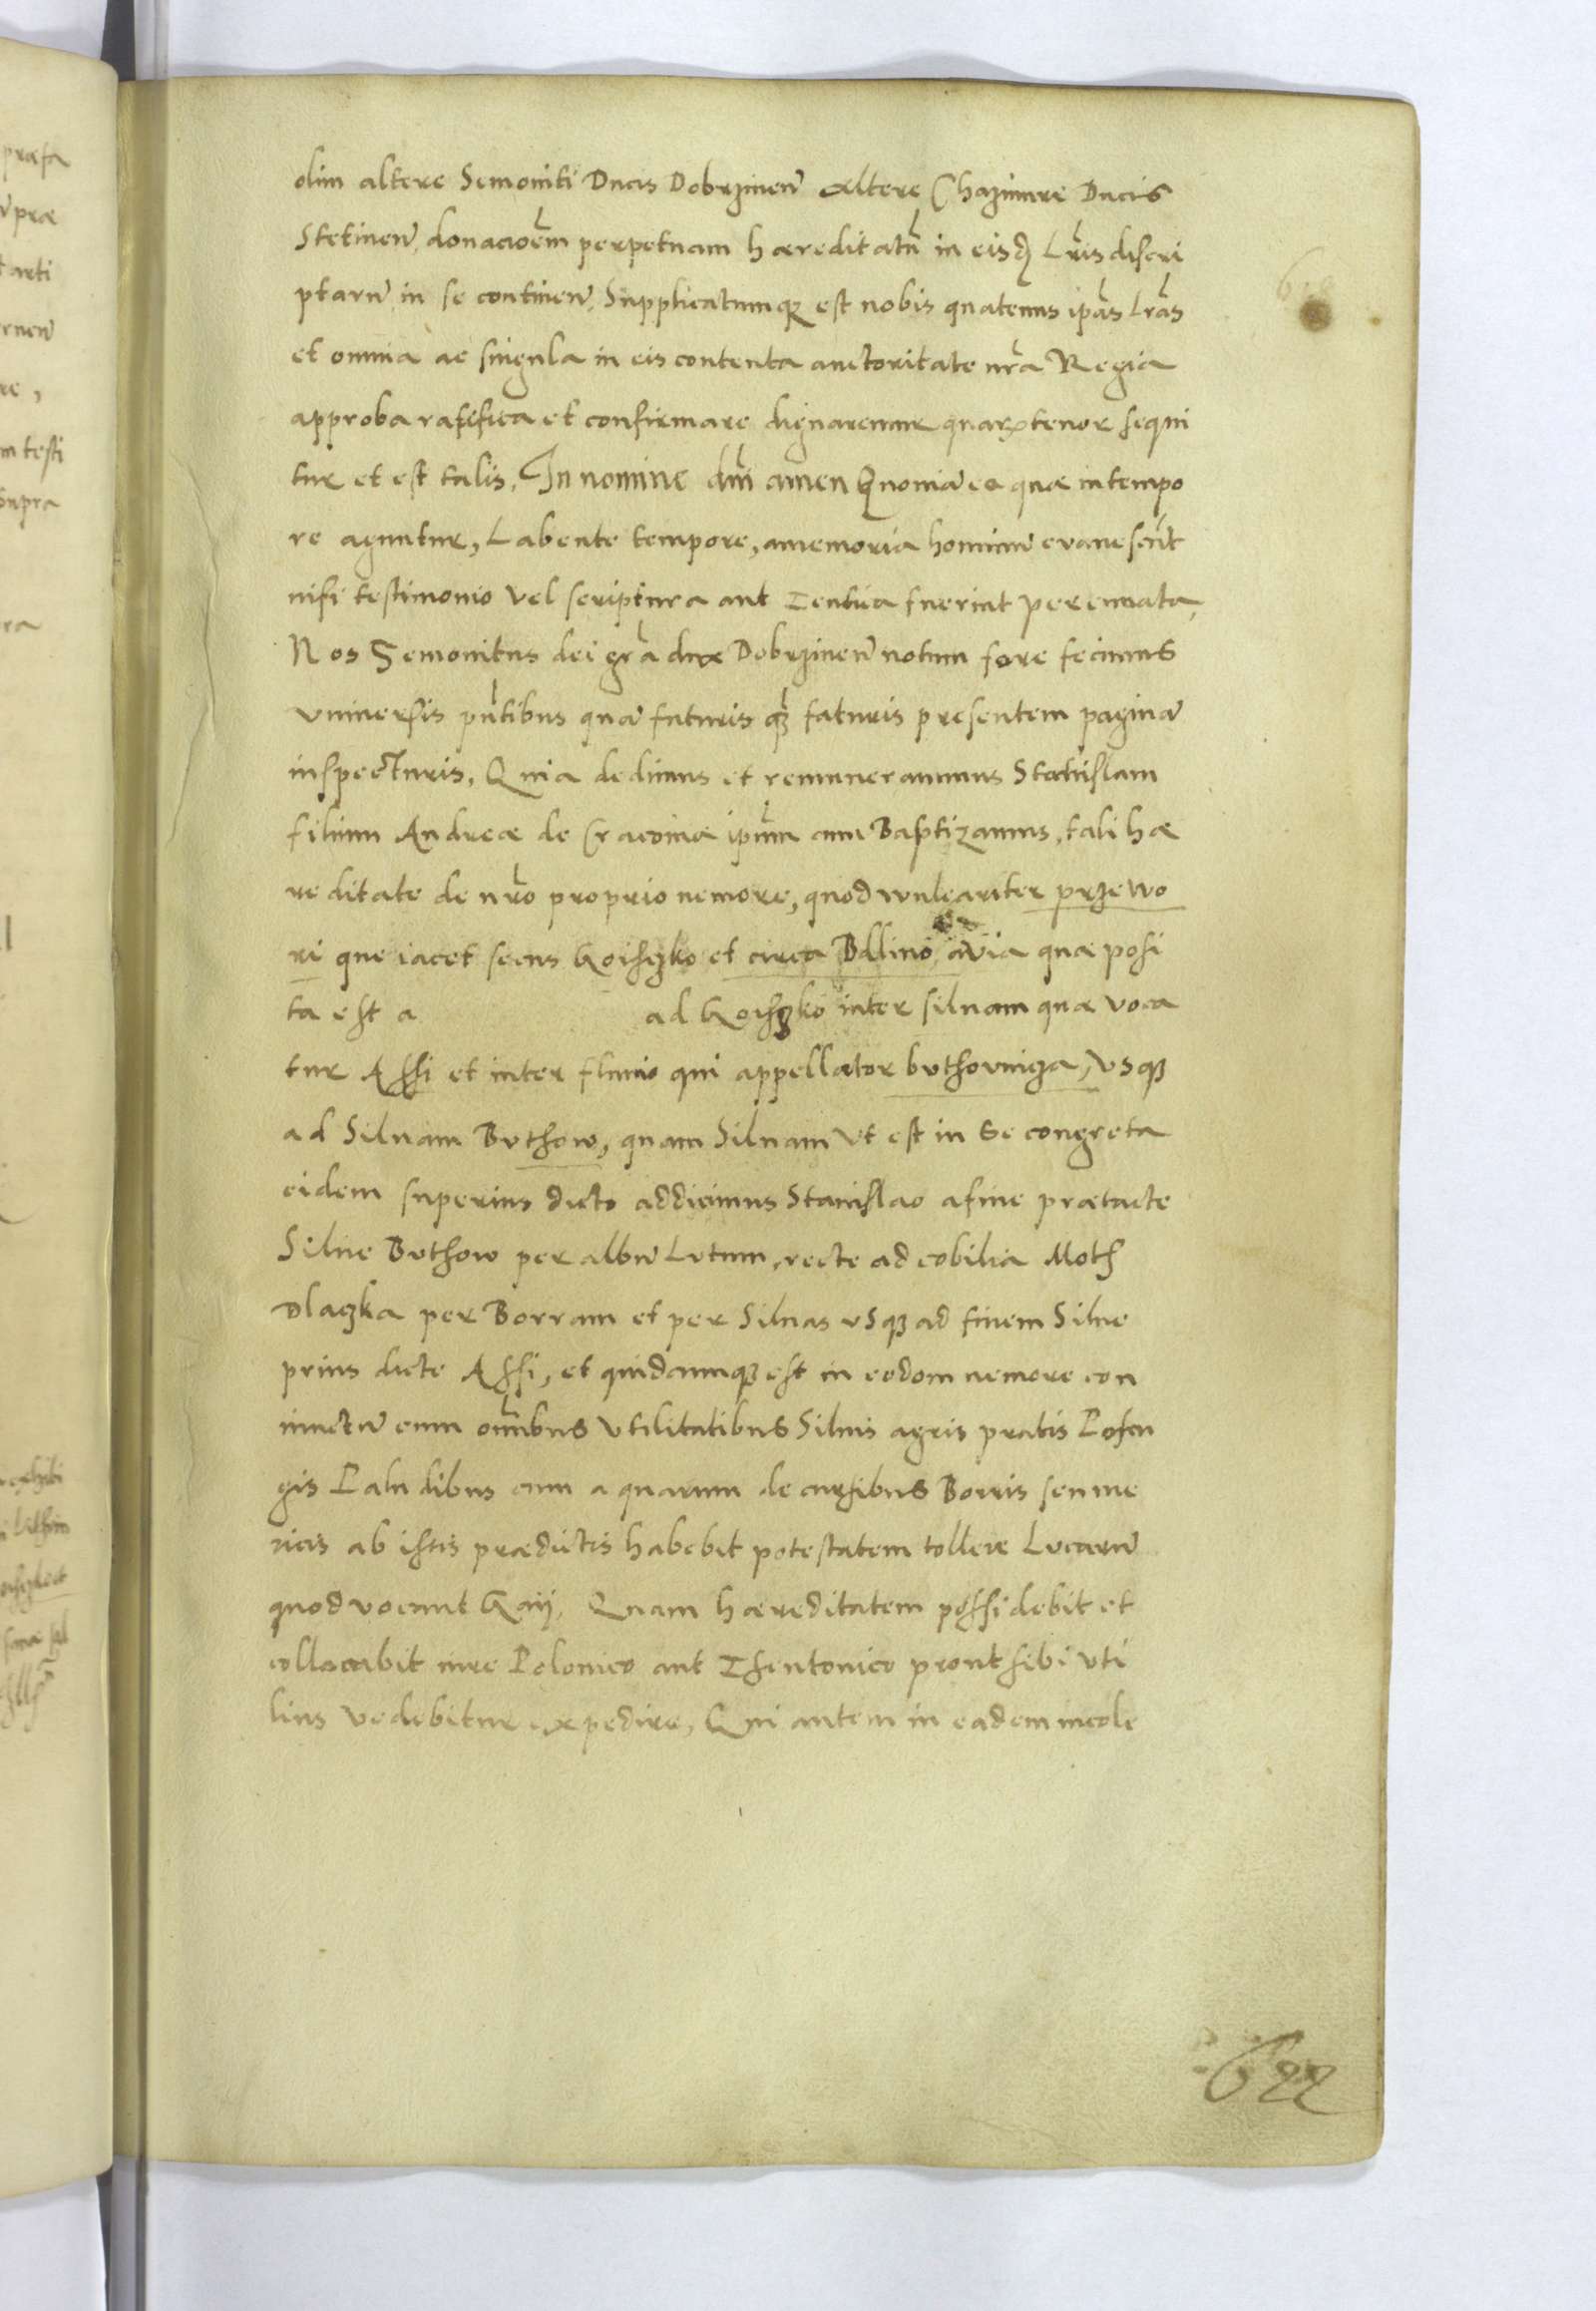 olim altere Semoniti Ducis Dobrzinen altere Chazimire Ducis
Stetinen, donacōem perpetuam hæreditatū in eisd Lrīs discri
ptarū in se continen, Supplicatumq est nobis quatenus ipās Lrās
et omnia ac singula in eis contenta auctoritate nrā Regia
approba ratifica et confirmare dignaremur quarꝝ tenor sequi
tur et est talis. In nomine dnī amen Quoniā ea quæ in tempo
re aguntur, Labente tempore, amemoria hominū evanescūt
nisi testimonio vel scriptura aut fuerint perennata,
Nos Semonitus dei grā dux Dobrzinen notum fore fecimus
vniversis pntibus quā futuris qz faturis presentem paginā
inspecturis, Quia dedimus et remuneravimus Stanislaum
filium Andreæ de Cracoviæ ipūm cum Baptizamus, tali hæ
reditate de nrō proprio nemore, quod wulgariter przewo
ri que iacet secus Koisczko et circa Bdlino avia quæ posi
ta est a ad Koisczko inter silvam quæ voca
tur Assi et inter fluvio qui appellator buthovniza, vsqz
ad Silvam Buthow, quam Silvam vt est in se congreta
eidem superius dicto addicimus Stanislao afine prætacte
Silve Buthow per albū Lutum, recte ad cobilia Moth
dlaczka per Borram et per Silvas vsqz ad finem Silve
prius dicte Assi, et quidcumqz est in eodem nemore con
iunctū cum omībus vtilitatibus Silvis agris pratis
gis Paludibus cum aquarum decursibus Borris seu me
ricis ab istis prædictis habebit potestatem tollere Lucarū
quod vocant Gaij, Quam hæreditatem possidebit et
collocabit iure Polonico aut Theutonico prout sibi vti
lius vedebitur expedire, Qui autem in eadem incole
622